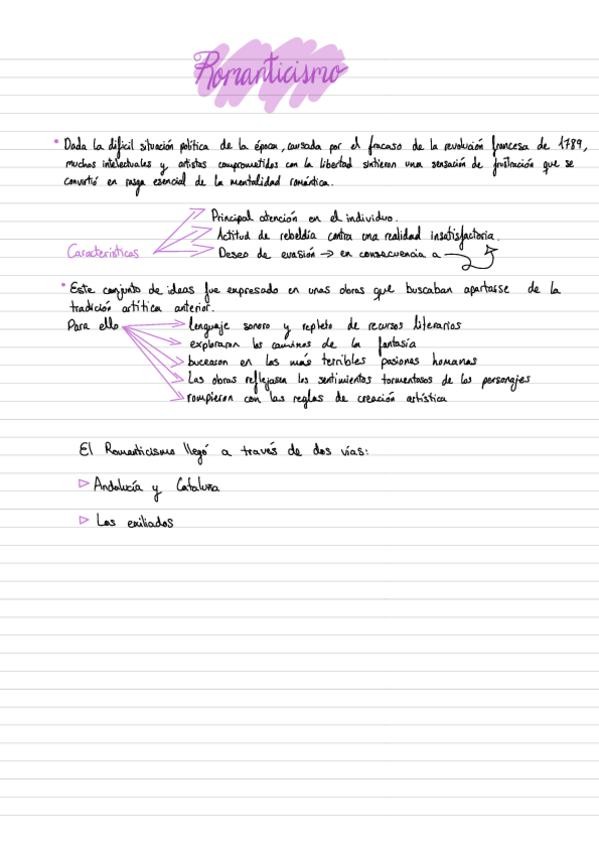 Romanticismo
* Dada la dificil situación política de la época, causada por el fracaso de la revolución francesa de 1789,
muchos intelectuales y artistas comprometidos con la libertad sintieron una sensación de frustración que se
convirtió en rasgo esencial de la mentalidad romántica.
Principal atención en el individuo.
Actitud de rebeldía contra una realidad insatisfactoria.
Características
Deseo de evasión → en consecuencia a
* Este conjunto de ideas fue expresado en unas obras que buscaban apartarse de la
tradición artítica anterior.
Para ello
lenguaje sonoro y repleto de recursos literarios
exploraron los caminos de la fantasía
bucearon en las más terribles pasiones humanas
Las obras reflejasen los sentimientos tormentosos de los personajes
rompieron con las reglas de creación artística
El Romanticismo llegó a través de dos vías:
▷ Andalucía y Cataluna
▷ Los exiliados